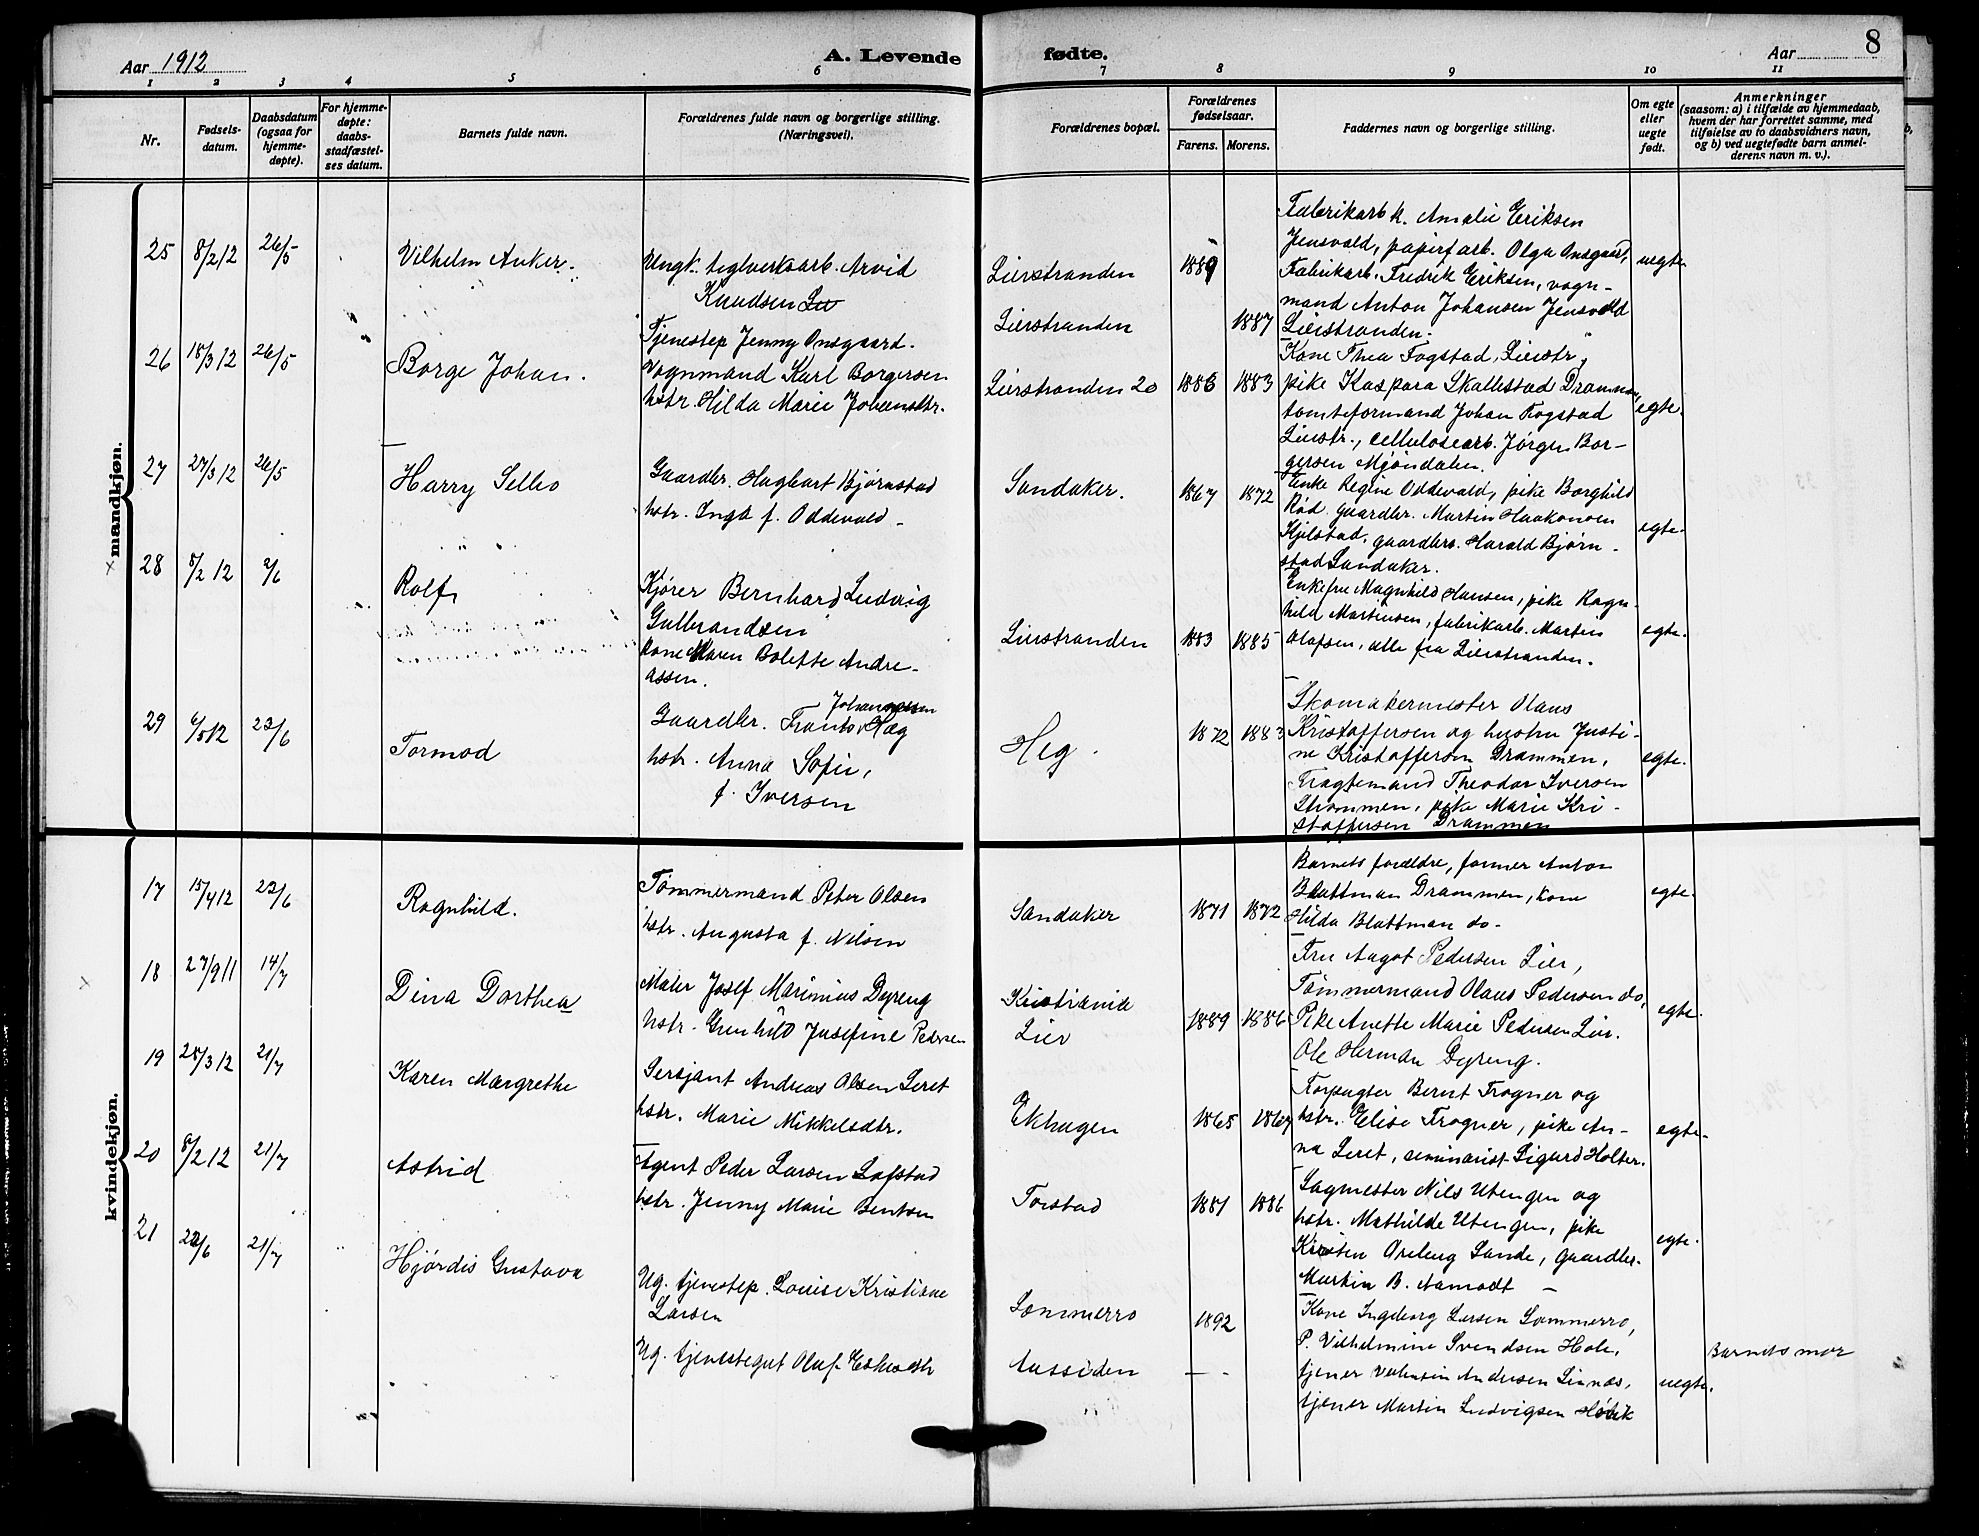 Aar 1912
A. Levende
fødte.
Aar
8
1 2 3 4 5 6 7 8 9 10 11
Nr.
Fødsels-
datum.
Daabsdatum
(ogsaa for
hjemme-
døpte).
For hjemme-
døpte:
daabs-
stadfæstel-
ses datum.
Barnets fulde navn.
Forældrenes fulde navn og borgerlige stilling.
(Næringsvei).
Forældrenes bopæl.
Forældrenes
fødselsaar.
Farens. Morens.
Faddernes navn og borgerlige stilling.
Om egte
eller
uegte
født.
Anmerkninger
(saasom: a) i tilfælde av hjemmedaab,
hvem der har forrettet samme, med
tilføielse av to daabsvidners navn,
og b) ved uegtefødte barn anmel-
derens navn m. v.).
mandkjøn.
25 8/2 12 26/5
Vilhelm Anker.
Ungk. teglverksarb. Arvid
Knudsen Lie
Tjenestep Jenny Onsgaard.
Lierstranden 1889
Lierstranden 1887
Fabrikarb k. Amalie Eriksen
Jensvold, papirfarb. Olga Onsgaard,
Fabrikarb. Fredrik Eriksen, vogn-
mand Anton Johansen Jensvold
Lierstranden.
uegte
26 18/3 12 26/5
Borge Johan.
Vognmand Karl Borgersen
hstr. Hilda Marie Johansdtr.
Lierstranden 20 1886 1883
Kone Thea Fogstad, Lierstr,
pike Kaspara Skallestad Drammen,
tomteformand Johan Fogstad
Lierstr., cellulosearb. Jørgen Bor-
gersen Mjøndalen.
egte.
27 27/3 12 26/5
Harry Selbo
Gaardbr. Hagbart Bjørnstad
hstr. Inga f. Oddevald -
Sandaker. 1867 1872
Enke Regine Oddevald, pike Borghild
Rød. gaardbr. Martin Haakonsen
Kjelstad, gaardbr. Harald Bjørn-
stad Sandaker.
egte.
28 8/2 12 2/6
Rolf,
Kjører Bernhard Ludvig
Gulbrandsen
kone Maren Bolette Andre-
assen.
Lierstranden 1883 1885
Enkefru Magnhild Hansen, pike Ragn-
hild Martinsen, fabrikarb. Martin
Olafsen, alle fra Lierstranden.
egte.
29 6/5 12 23/6
Tormod
Johannesen
Gaardbr. Frants Hæg
hstr. Anna Sofie,
f. Iversen
Heg. 1872 1883
Skomakermester Olaus
Kristoffersen og hustru Justi-
ne Kristoffersen Drammen,
Fragtemand Theodor Iversen
Strømmen, pike Marie Kri-
stoffersen Drammen
egte.
kvindekjøn.
17 15/4 12 23/6
Ragnhild.
Tømmermand Peter Olsen
hstr. Augusta f. Nilsen
Sandaker 1871 1872
Barnets forældre, former Anton
Blattman Drammen, kone
Hilda Blattman do.
egte.
18 27/9 11 14/7
Dina Dorthea
Maler Josef Marinius Dyreng
hstr. Gunhild Josefine Pedersen
Kristiania
Lier 1889 1886
Fru Aagot Pedersen Lier,
Tømmermand Olaus Pedersen do,
Pike Anette Marie Pedersen Lier.
Ole Herman Dyreng.
egte.
19 28/3 12 21/7
Karen Margrethe
Sersjant Andreas Olsen Leret
hstr. Marie Mikkelsdtr.
Ekhagen 1865 1867
Forpagter Bernt Frogner og
hstr. Elise Frogner, pike An-
na Leret, seminarist Sigurd Holter.
egte.
20 8/2 12 21/7
Astrid
Agent Peder Larsen Lofstad
hstr. Jenny Marie Bentsen
Torstad 1881 1886
Sagmester Nils Utengen og
hstr. Mathilde Utengen, pike
Kirsten Oreberg Sande, gaardbr.
Martin B. Aamodt -
egte.
21 22/6 21/7
Hjørdis Gustava
Ug. tjenestep. Louise Kristiane
Larsen
Ug. tjenestegut Oluf
Sommerro 1892
Aassiden -
Kone Ingeborg Larsen Sommerro,
P. Vilhelmine Svendsen Hole,
tjener Valentin Andersen Linnæs,
tjener Martin Ludvigsen Høvik
uegte.
Barnets mor